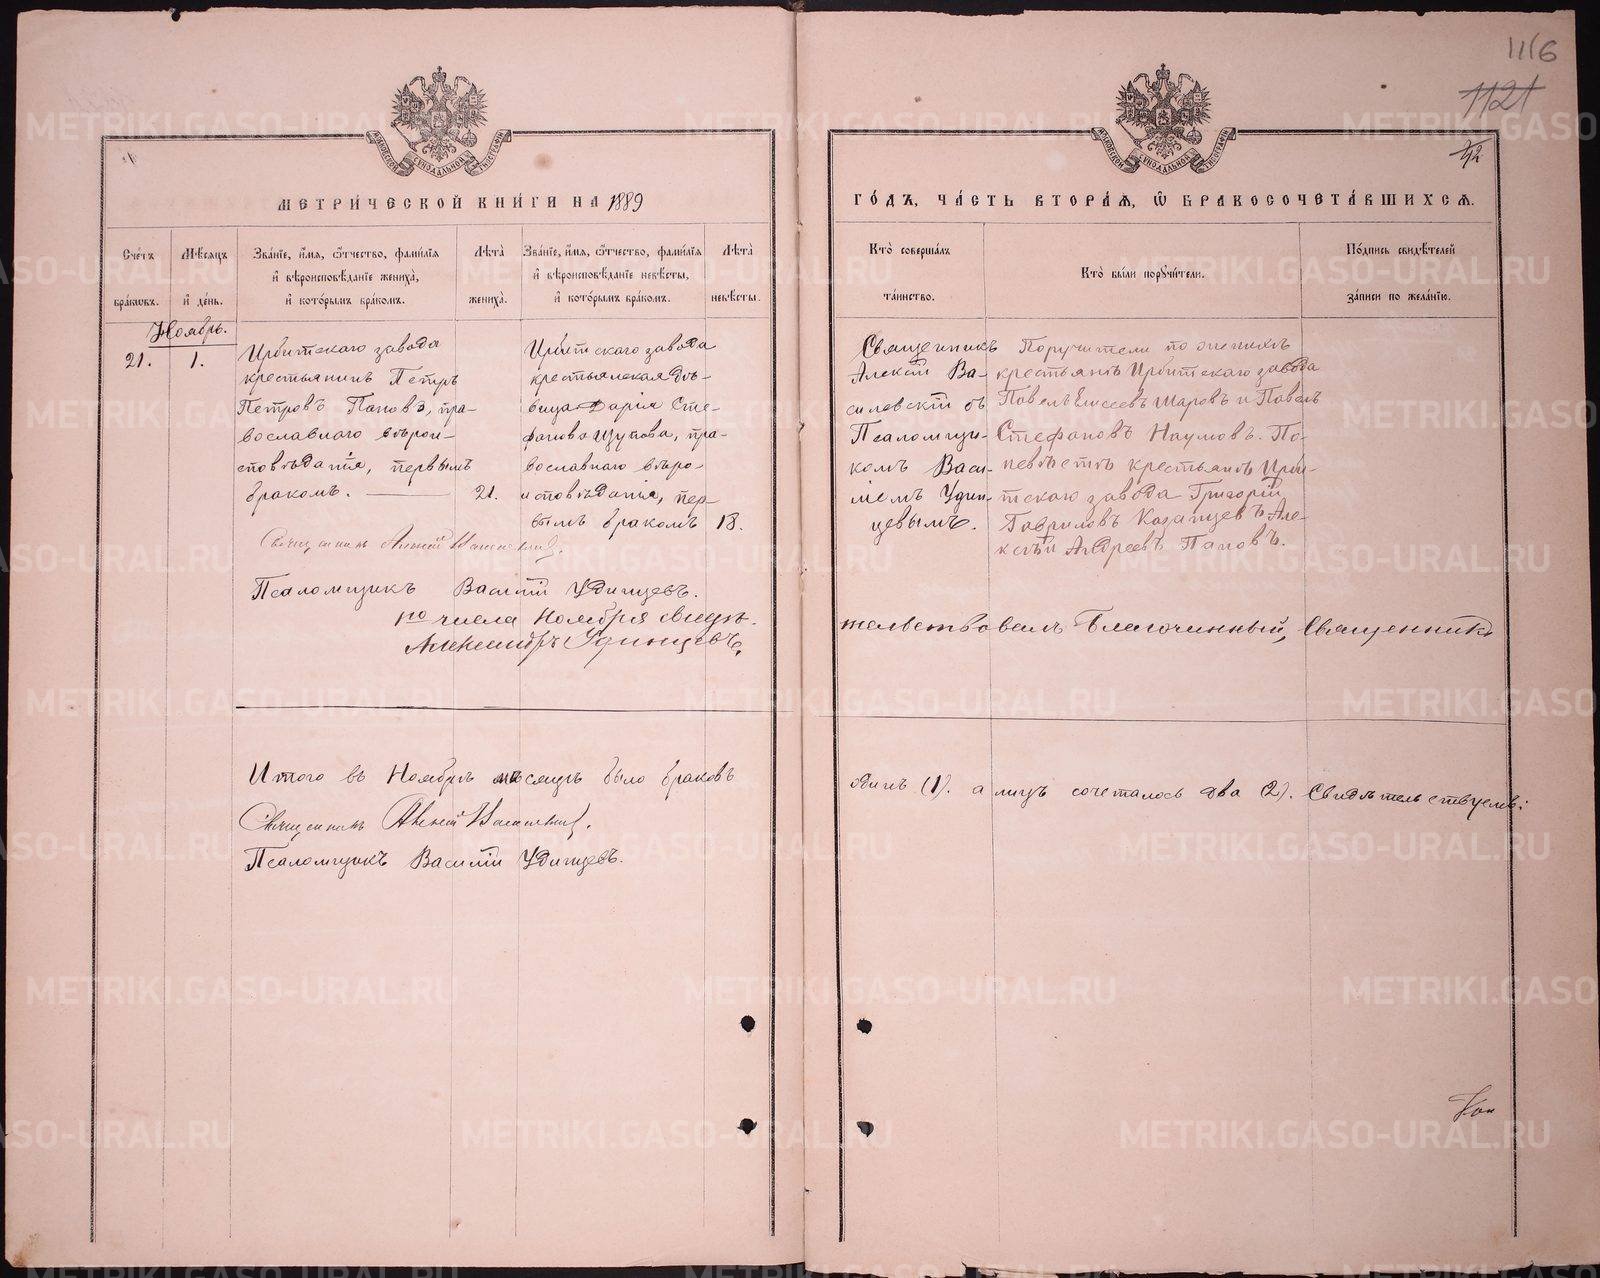 1116
1121
92
МЕТРИ́ЧЕСКОЙ КНИ́ГИ НА 1889
ГО́ДЪ, ЧА́СТЬ ВТОРА́Ѧ, Ѽ БРАКОСОЧЕТА́ВШИХСѦ.
Сче́тъ бра́кѡвъ.
Мѣ́сѧцъ и҆ де́нь.
Зва́нїе, и҆́мѧ, ѻ҆́тчество, фами́лїѧ и҆ вѣроисповѣ́данїе жениха̀, и҆ кото́рымъ бра́комъ.
Лѣта̀ жениха̀.
Зва́нїе, и҆́мѧ, ѻ҆́тчество, фами́лїѧ и҆ вѣроисповѣ́данїе невѣ́сты, и҆ кото́рымъ бра́комъ.
Лѣта̀ невѣ́сты.
Кто̀ соверша́лъ та́инство.
Кто̀ бы́ли порꙋчи́тели.
По́дпись свидѣ́телей за́писи по жела́нїю.
Ноябрь.
21.
1.
Ирбитскаго завода
крестьянинъ Петръ
Петровъ Пановъ, пра-
вославнаго вѣрои-
сповѣданія, первымъ
бракомъ.
21.
Ирбитскаго завода
крестьянская дѣ-
вица Дарія Сте-
фанова Щупова, пра-
вославнаго вѣро-
исповѣданія, пер-
вымъ бракомъ
18.
Священникъ
Алексій Ва-
силевскій съ
Псаломщи-
комъ Васи-
ліемъ Удин-
цевымъ.
Поручители по женихѣ
крестьяне Ирбитскаго завода
Павелъ Елисеевъ Шаровъ и Павелъ
Стефановъ Наумовъ. По
невѣстѣ крестьяне Ирби-
тскаго завода Григорій
Гавриловъ Казанцевъ Але-
ксѣй Андреевъ Пановъ.
Священникъ Алексій Василевскій.
Псаломщикъ Василій Удинцевъ.
1го числа Ноября свидѣ-
тельствовалъ Благочинный, Священникъ
Александръ Удинцевъ.
Итого въ Ноябрѣ мѣсяцѣ было браковъ
одинъ (1). а лицъ сочеталось два (2). Свидѣтельствуемъ:
Священникъ Алексій Василевскій.
Псаломщикъ Василій Удинцевъ.
METRIKI.GASO-URAL.RU